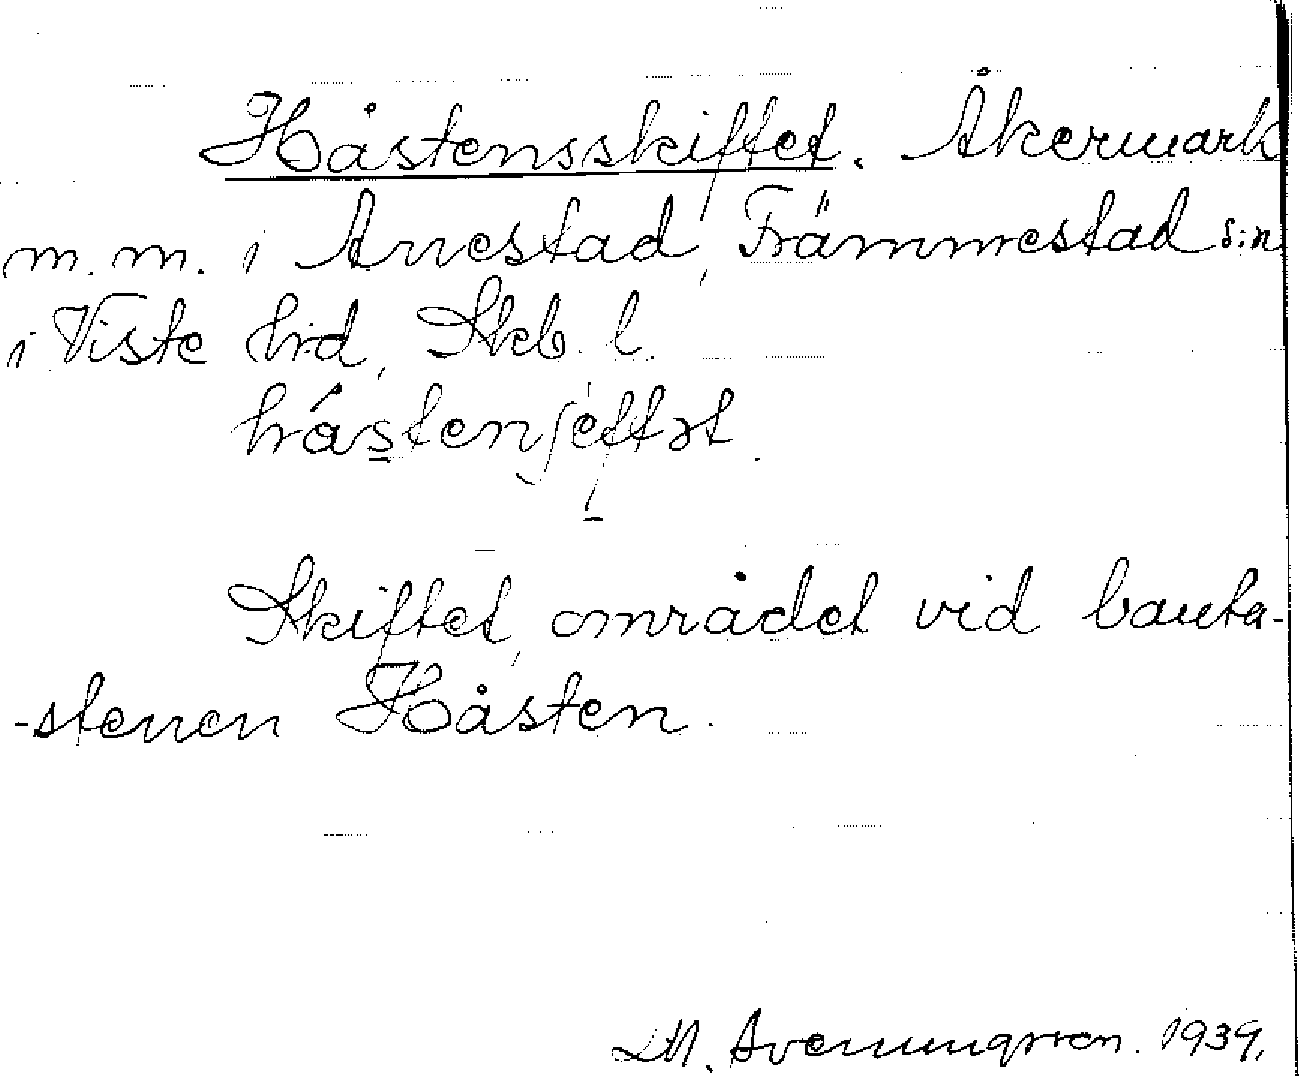 Håstensskiftet. Åkermark
m.m. i Arvestad, Främmestad s:n
i Viste hd, Skb. l.
hástenʃeftət.
Skiftet, området vid bauta-
-stenen Håsten.
M. 1939.